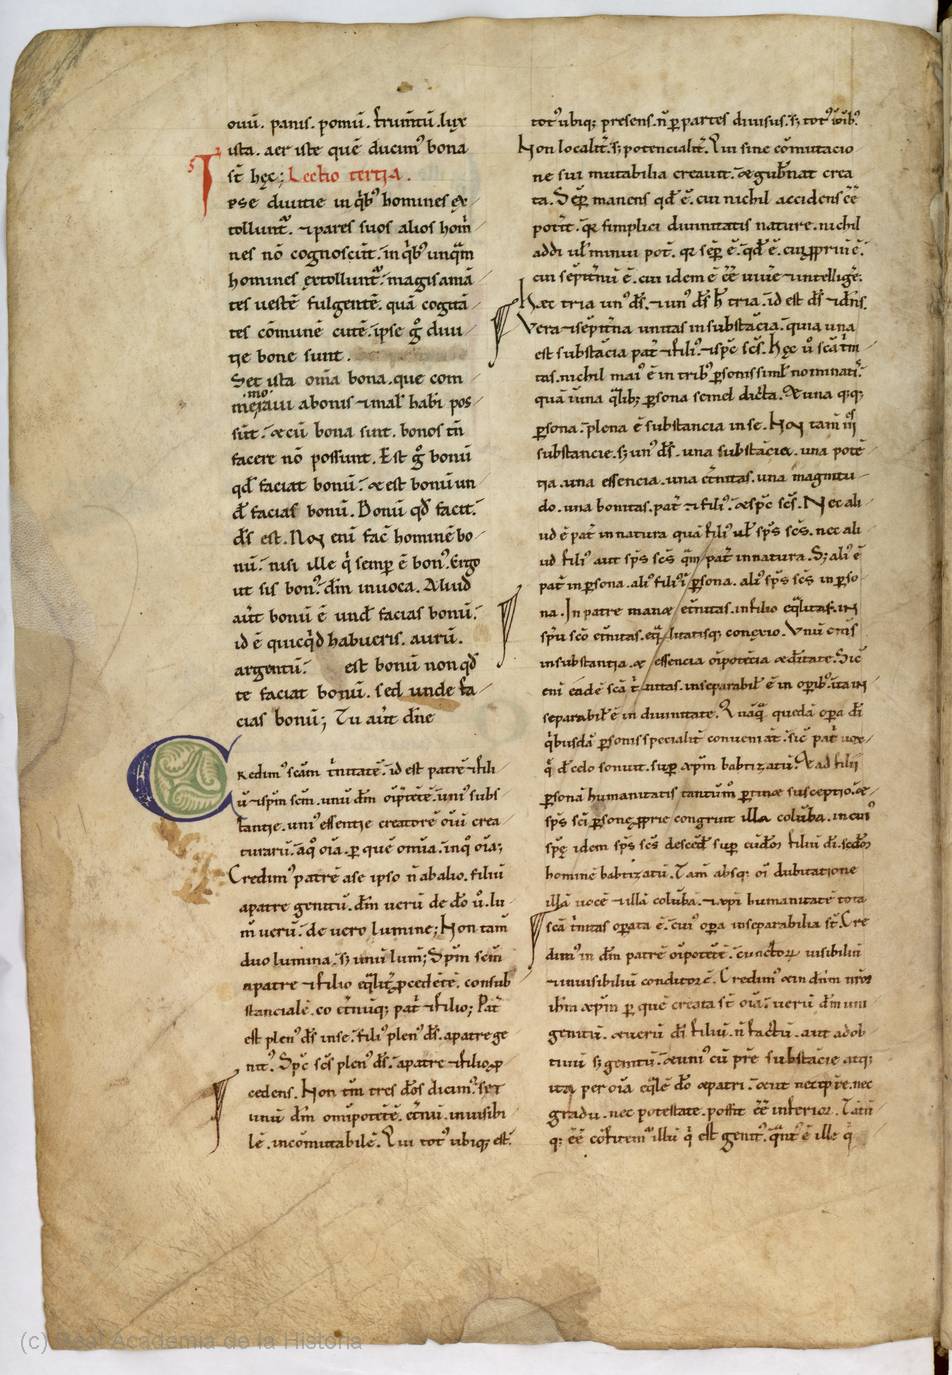 ouū. panis. pomū. frum̄tū. lux
ista. aer iste quē ducim᷒ bona
st̄ hęc; Lectio tertia.
Ipse diuitie in q̄b᷒ homines ex
tollunt᷒. ⁊ pares suos alios hom̄
nes nō cognoscūt. in q̄b᷒ unq̄m
homines extollunt᷒. magis amā
tes uestē fulgentē. quā cogitā
tes cōmunē cutē. ipse g̊ diui
tie bone sunt.
Set ista om̄a bona. que com
memoraui a bonis ⁊ mal᷒ habi pos
sūt. ⁊ cū bona sint. bonos tn̄
facere nō possunt. Est g̊ bonū
qd̄ faciat bonū. ⁊ est bonū un
d̄ facias bonū. Bonū qd̄ facit.
d̄s est. Non enī fac̄ hominē bo
nū. nisi ille q̄ semp̄ ē bon᷒. Ergo
ut sis bon᷒. dm̄ inuoca. Aliud
aūt bonū ē und̄ facias bonū.
id ē quicq̄d habueris. aurū.
argentū. est bonū non qd̄
te faciat bonū. sed unde fa
cias bonū; Tu aūt dn̄e
Credim᷒ scām t̄nitatē. id est patrē ⁊ fili
ū ⁊ sp̄m scm̄. unū dm̄ oīp̄tētē. uni᷒ subs
tantie. uni᷒ essentie creatorē oīū crea
turarū. a q̊ oīa. p̄ quē omīa. in q̊ oīa;
Credim᷒ patrē a se ipso n̄ ab alio. filiū
a patre genitū. dm̄ uerū de dō ū. lu
m̄ uerū. de uero lumine; Non tam̄
duo lumina. s; unū lum̄; Sp̄m scm̄
a patre ⁊ filio eq̄lit᷒ p̄cedētē. consub
stancialē. co et̄nūq; pat̄ ⁊ filio; Pat̄
est plen᷒ d̄s in se. fili᷒ plen᷒ d̄s. a patre ge
nit᷒. Sp̄c sc̄s plen᷒ d̄s. a patre ⁊ filio p̄
cedens. Non tm̄ tres dōs dicim᷒. set
unū dm̄ omīpotētē. et̄nū. inuisibi
lē. incōmutabilē. Qui tot᷒ ubiq; est.
tot᷒ ubiq; presens. n̄ p̄ partes diuisus. s; tot᷒ ī oīb᷒.
Non localit᷒. s; potencialit᷒. Qui sine cōmutacio
ne sui mutabilia creauit. ⁊ gub̄nat crea
ta. Sēp̄ manens qd̄ ē. cui nichil accidens ēē
potīt. q̄r simplici diuinitatis nature. nichil
addi ul᷒ minui pot᷒. q̄r sēp̄ ē. qd̄ ē. cui p̄priū ē.
cui sēpit̄nū ē. cui idem ē ēē uiuē ⁊ intelligē.
Hec tria un᷒ d̄s. ⁊ un᷒ d̄s h̄ tria. id est d̄s ⁊ dn̄s.
Vera ⁊ sēpit̄na unitas in substācia. quia una
est substācia pat̄ ⁊ filii. ⁊ sp̄c sc̄s. Hęc ū scā t̄ni
tas. nichil mai᷒ ē in trib᷒ p̄sonis simł nominati᷒.
quā ī una q̄lib; p̄sona semel dicta. Q̄a una q̄q;
p̄sona. plena ē substancia in se. Non tam̄ iii
substancie. s; un᷒ d̄s. una substācia. una potē
tia. una essencia. una et̄nitas. una magnitu
do. una bonitas. pat̄ ⁊ fili᷒. ⁊ sp̄c sc̄s. Nec ali
ud ē pat̄ in natura quā fili᷒ ul᷒ sp̄s sc̄s. nec ali
ud fili᷒ aut sp̄s sc̄s q̄m pat̄ in natura. S; ali᷒ ē
pat̄ in p̄sona. ali᷒ fili᷒ ī p̄sona. ali᷒ sp̄s sc̄s in p̄so
na. In patre manet et̄nitas. in filio eq̄litas. in
sp̄u scō et̄nitas. eq̄litatisq; conexio. Vnū
in substantia. ⁊ essencia oīpotēcia ⁊ deitate. Sic̄
enī eadē scā t̄nitas. inseparabił ē in op̄ib᷒. ita in
separabił ē in diuinitate. Quāq̄ quedā op̄a dī
q̄busdā p̄sonis specialit᷒ conueniāt. sic̄ pat̄ uox
q̄ d̄ celo sonuit. sup̄ xp̄m babtizatū. Et ad filii
p̄sonā humanitatis tantūm̊ p̄tinet susceptio. ⁊
sp̄s sc̄i p̄sonę p̄prie congruit illa colūba. in cui᷒
sp̄ę idem sp̄s sc̄s descēd̄ sup̄ eūdem filiū dī. scd̄m
hominē babtizatū. Tam̄ absq; oī dubitatione
illā uocē ⁊ illā colūbā. ⁊ xp̄i humanitatē tota
scā t̄nitas op̄ata ē. cui᷒ op̄a inseparabilia st̄. Cre
dim᷒ in dm̄ patrē oīpotētē. cunctorū uisibiliū
⁊ inuisibiliū conditorē. Credim᷒ ⁊ in dn̄m nr̄m
ih̄m xp̄m. p̄ quē creata st̄ oīa. uerū dm̄ uni
genitū. ⁊ uerū dī filiū. n̄ factū. aut adob
tiuū s; genitū. ⁊ uni᷒ cū p̄re substācie atq;
ita per oīa eq̄lē dō ⁊ patri. ut nec tp̄re. nec
gradu. nec potestate. possit ēē inferior. Tant᷒
q; ēē cōfitem᷒ illū q̄ est genit᷒. q̄nt᷒ ē ille q̄
(c) Real Academia de la Historia